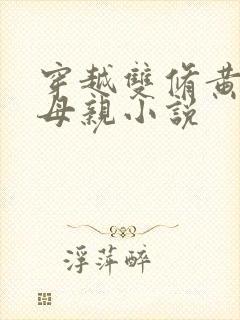 穿越雙脩黃
母親小説
浮萍醉